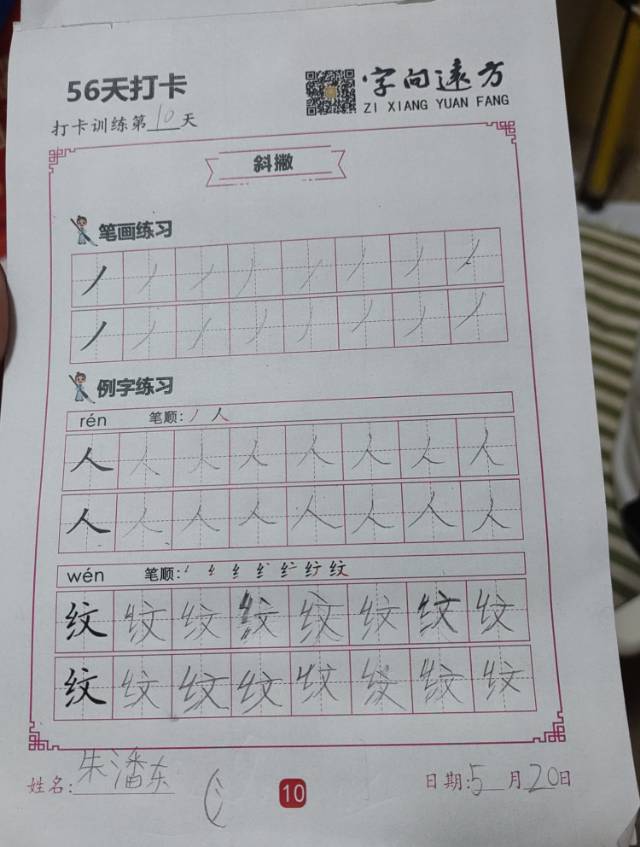 56天打卡
字向遠方
ZI XIANG YUAN FANG
打卡训练第10天
斜撇
笔画练习
例字练习
rén 笔顺: 丿 人
人 人 人 人 人 人 人 人
人 人 人 人 人 人 人 人
wén 笔顺: 纟 纹
纹 纹 纹 纹 纹 纹 纹 纹
纹 纹 纹 纹 纹 纹 纹 纹
姓名: 朱潘东
10
日期: 5月20日